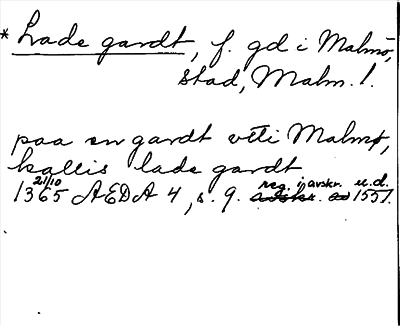 * Lade gardt, f. gd i Malmö,
stad, Malm. l.
paa en gardt veti Malmø,
kallis lade gardt
21/10 reg. i avskr. u.d.
1365 AEDA 4, s. 9. avskr. av 1551.